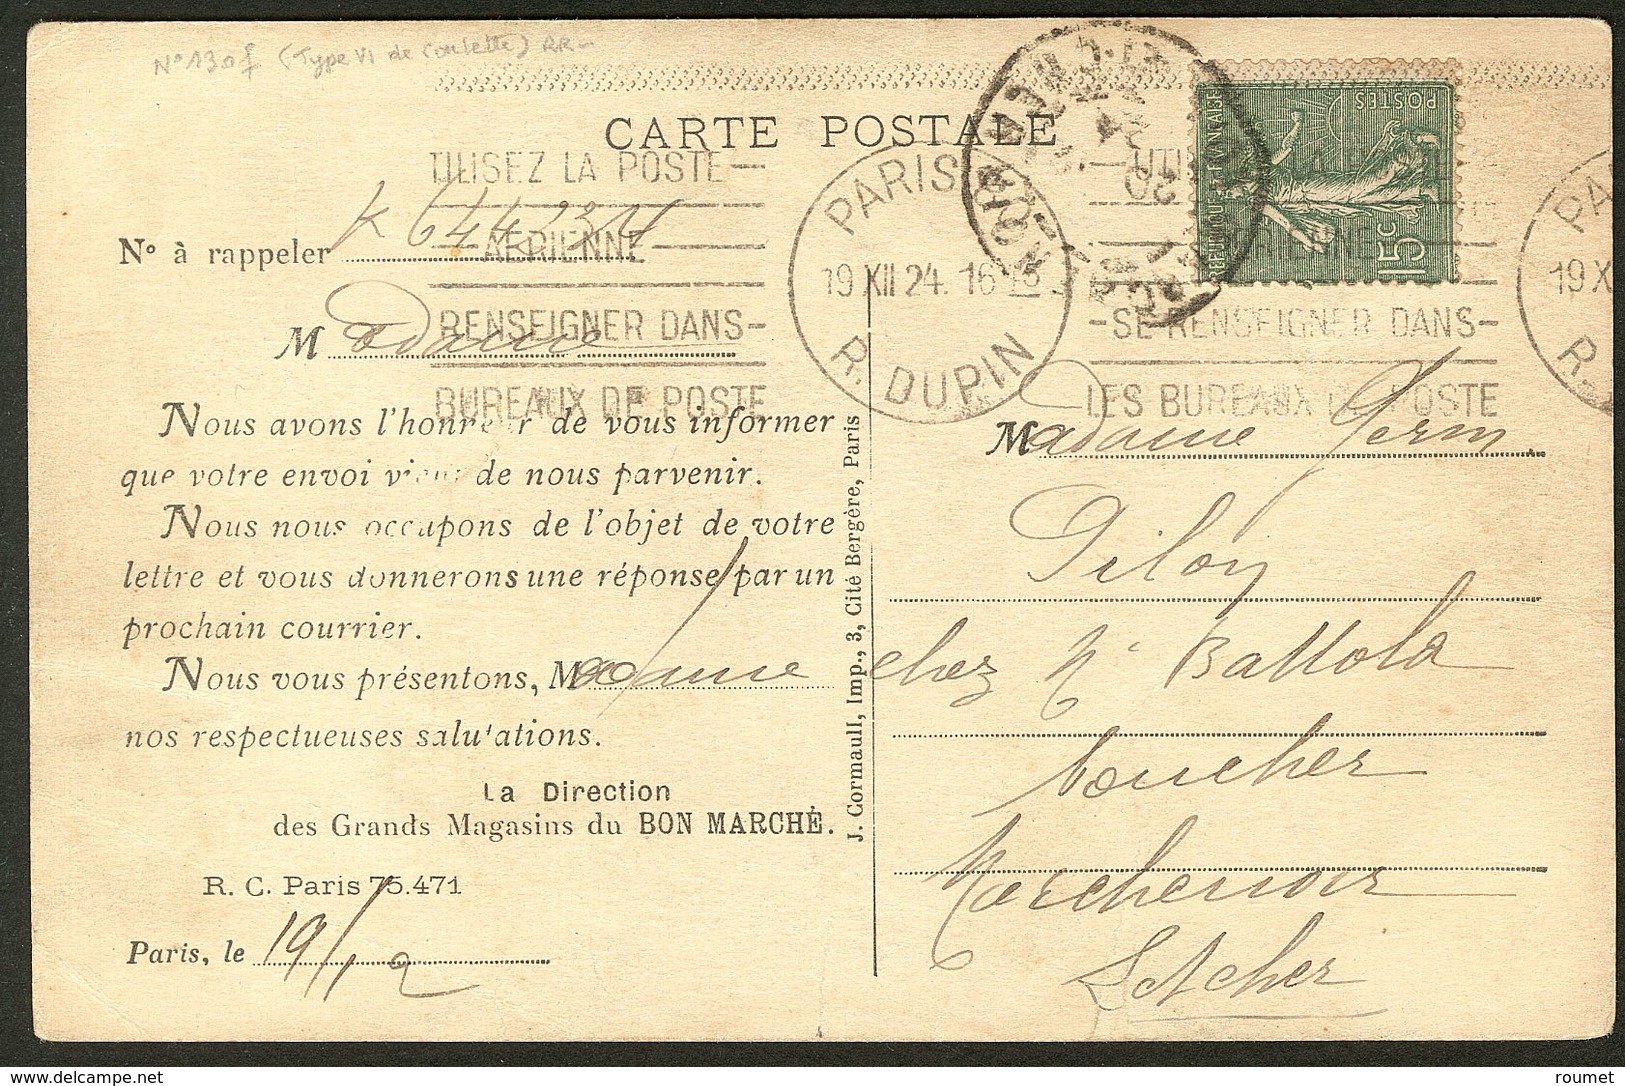 N° 130f (Type VI de roulette) RR
CARTE POSTALE
UTILISEZ LA POSTE
AERIENNE
RENSEIGNER DANS
BUREAUX DE POSTE
PARIS
19 XII 24. 16
R. DUPIN
SE RENSEIGNER DANS
LES BUREAUX DE POSTE
19 X
POSTES
REPUBLIQUE FRANCAISE
15c
N° à rappeler K 644
Madame
Nous avons l'honneur de vous informer
que votre envoi vient de nous parvenir.
Nous nous occupons de l'objet de votre
lettre et vous donnerons une réponse par un
prochain courrier.
Nous vous présentons, Madame
nos respectueuses salutations.
La Direction
des Grands Magasins du BON MARCHÉ.
R. C. Paris 75.471
Paris, le 19/12
J. Cormault, Imp., 3, Cité Bergère, Paris
Madame Germ.
Piloy
chez Mr Battola
boucher
Marchenoir
L et Cher
roumet - delcampe.net